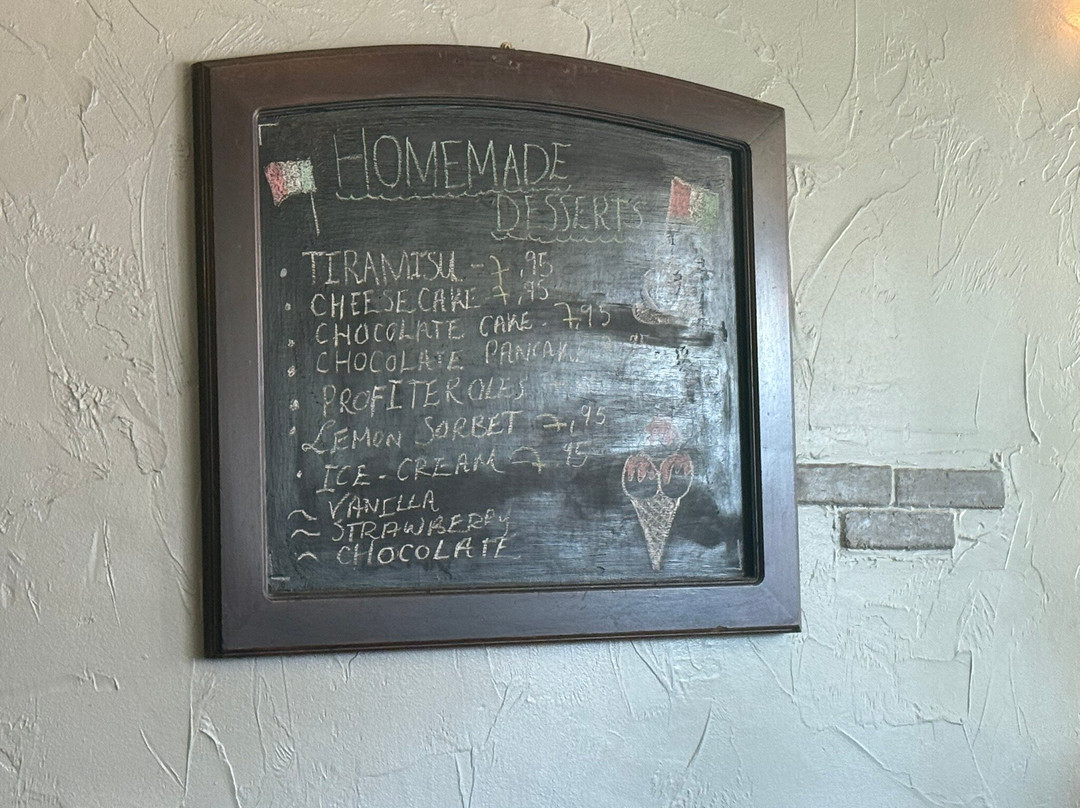 HOMEMADE
DESSERTS
TIRAMISU - 7,95
CHEESECAKE 7,95
CHOCOLATE CAKE - 7,95
CHOCOLATE PANCAKE
PROFITEROLES
LEMON SORBET 7,95
ICE-CREAM 7,95
~ VANILLA
~ STRAWBERRY
~ CHOCOLATE